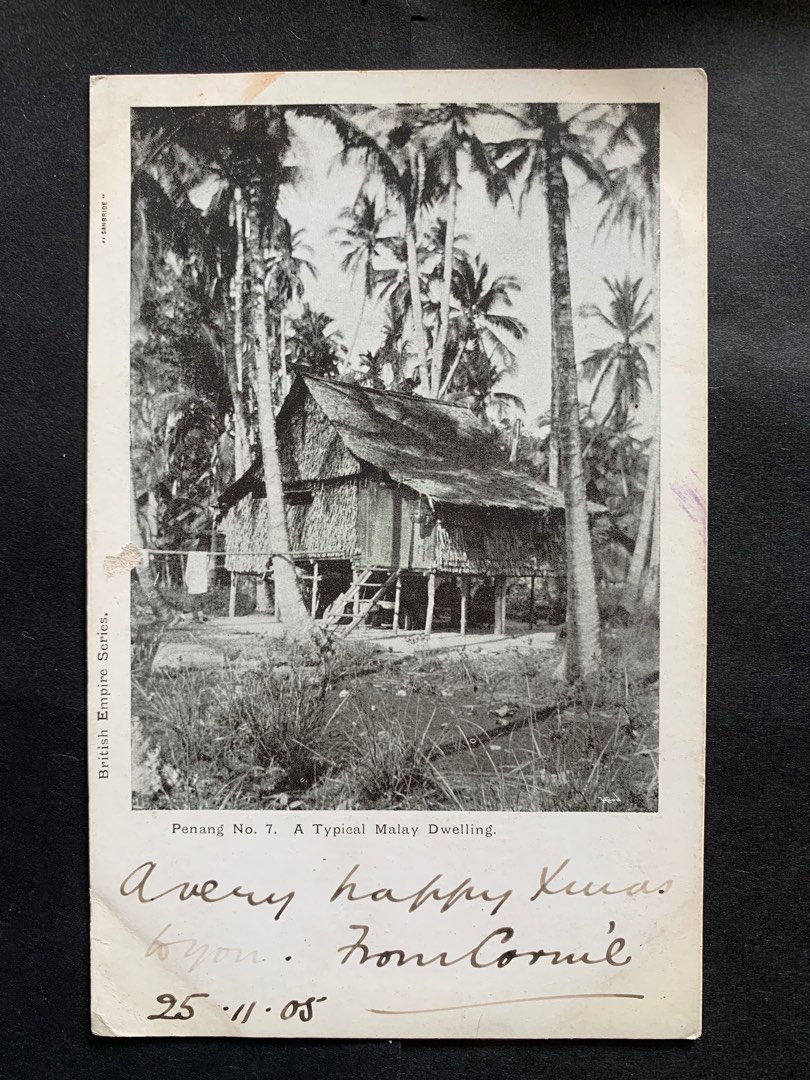 "SANBRIDE"
British Empire Series.
Penang No. 7. A Typical Malay Dwelling.
A very happy Xmas
to you. From
25.11.05